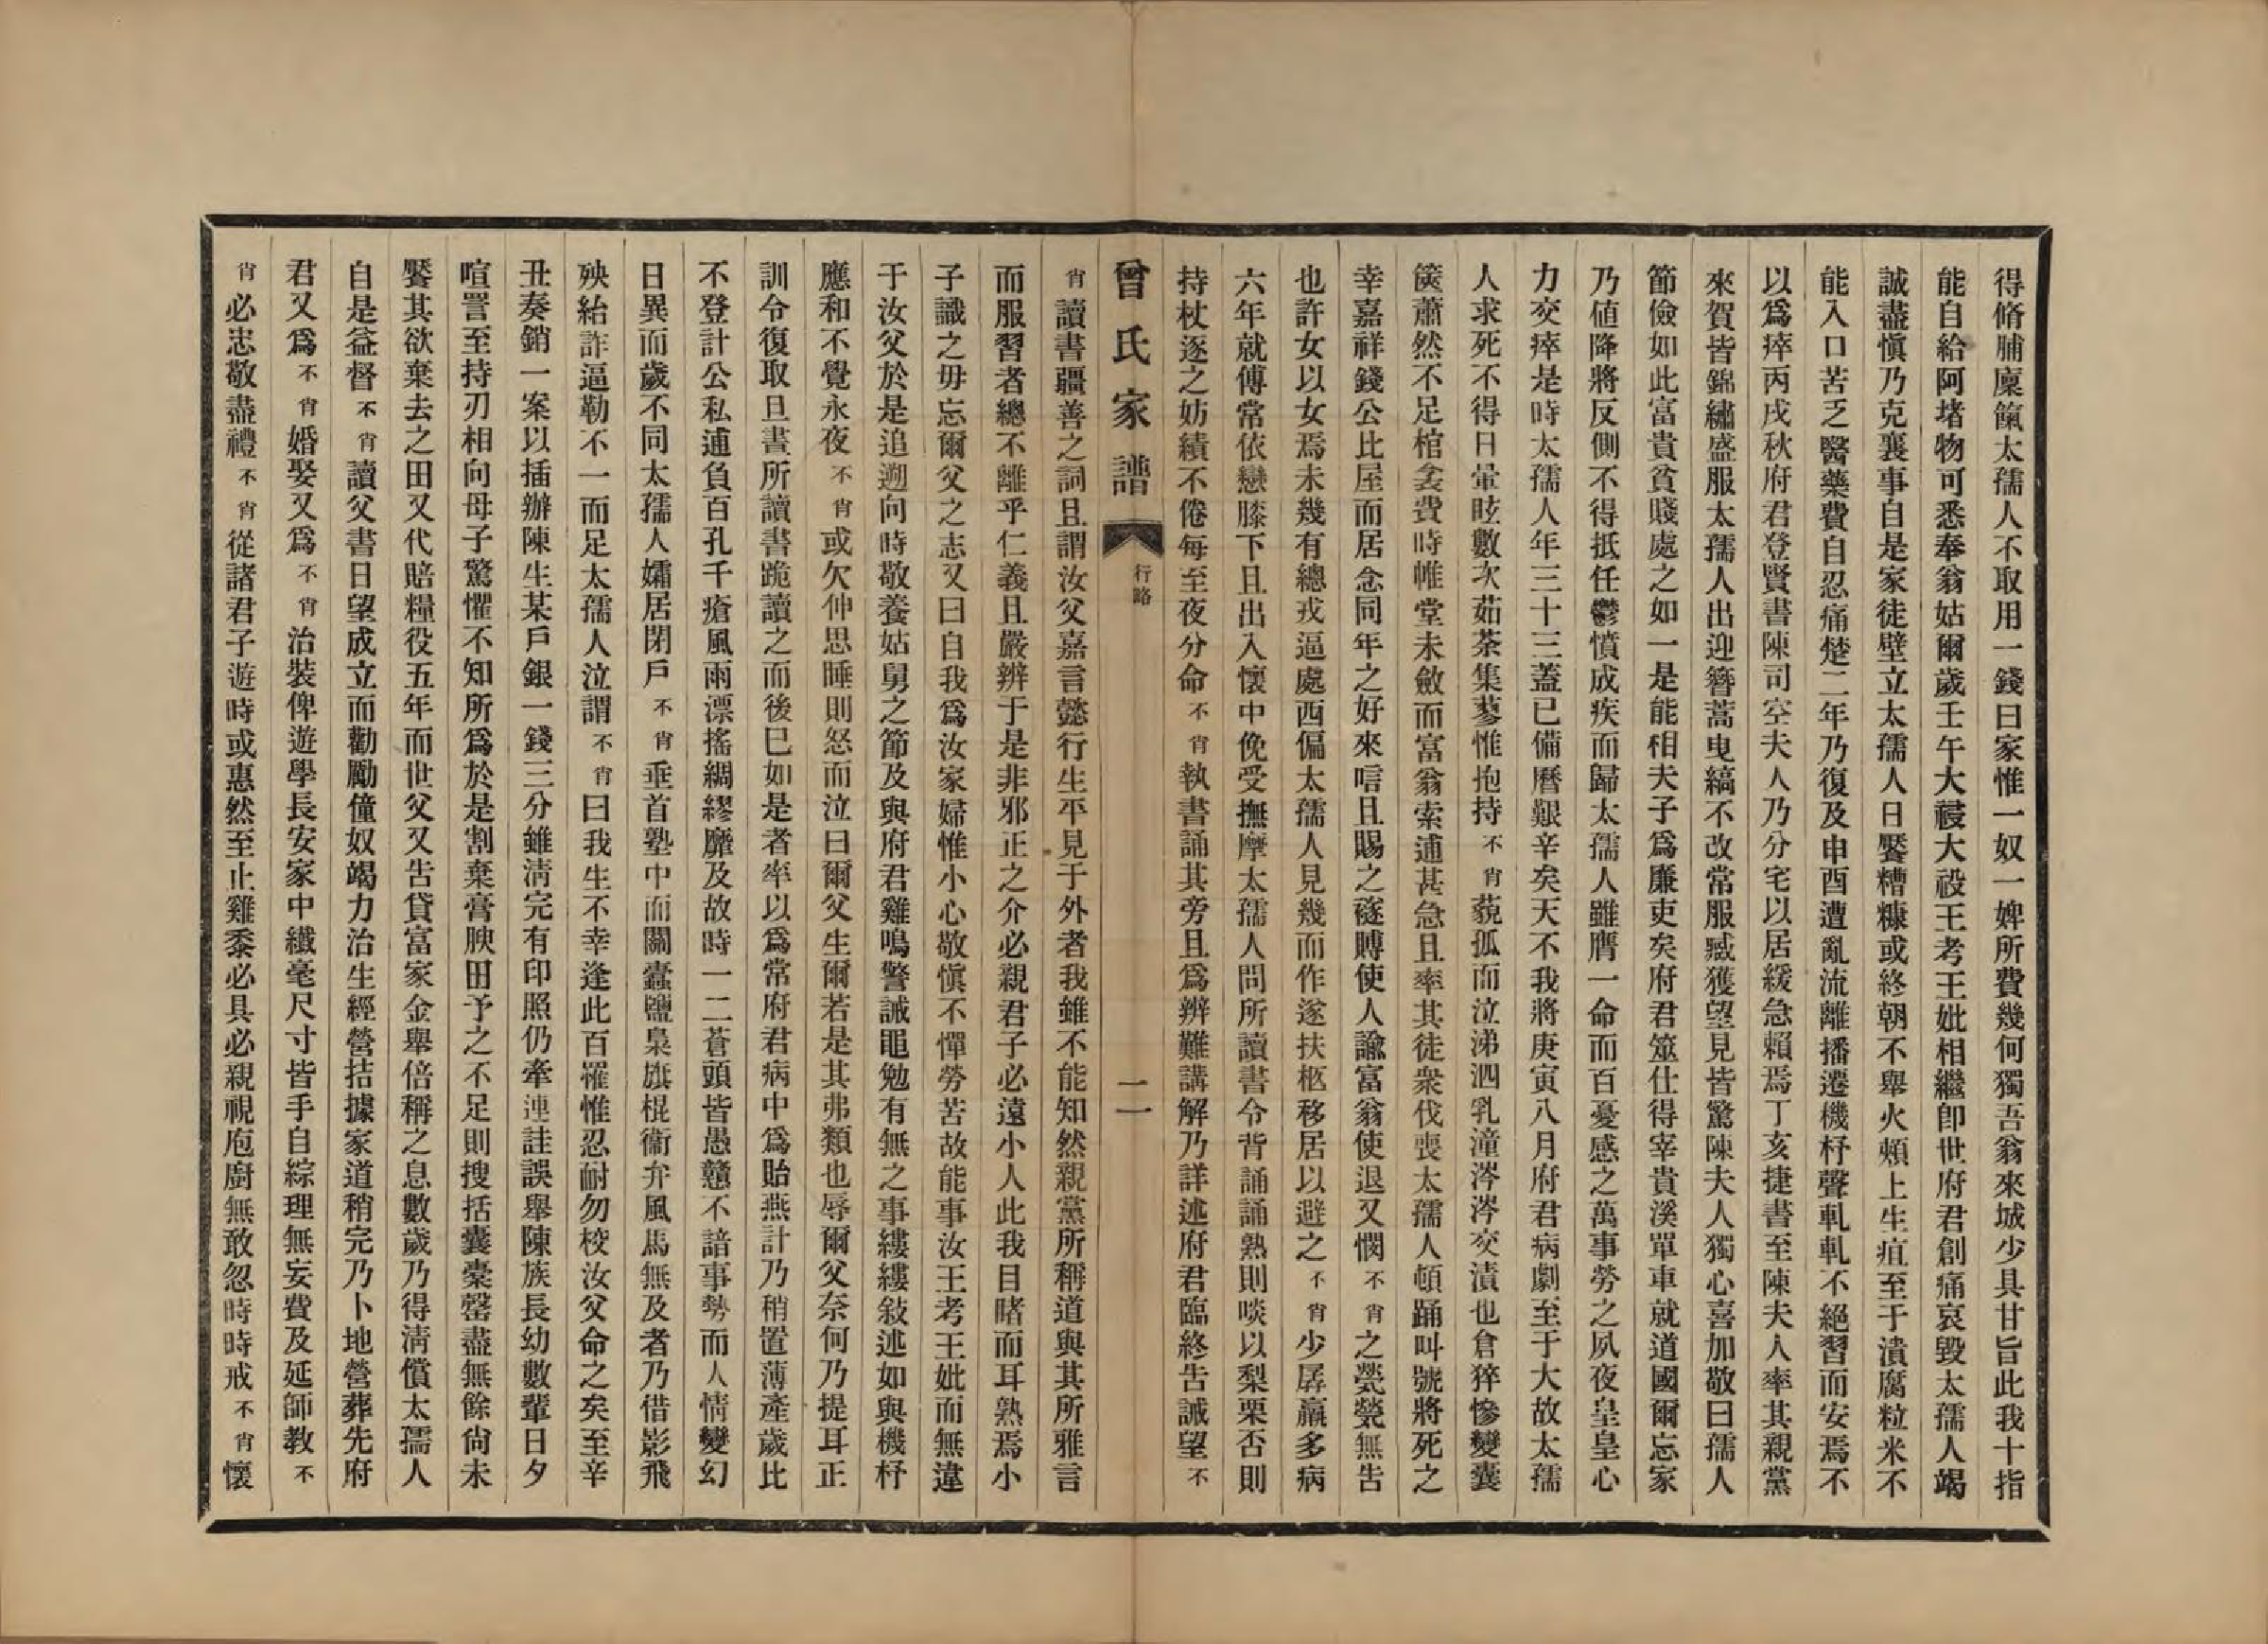 得脩脯廩餼太孺人不取用一錢曰家惟一奴一婢所費幾何獨吾翁來城少具甘旨此我十指
能自給阿堵物可悉奉翁姑爾歲壬午大祲大祲王考王妣相繼卽世府君創痛哀毀太孺人竭
誠盡愼乃克襄事自是家徒壁立太孺人日饜糟糠或終朝不舉火頰上生疽至于潰腐粒米不
能入口苦乏醫藥費自忍痛楚二年乃復及申酉遭亂流離播遷機杼聲軋軋不絕習而安焉不
以爲瘁丙戌秋府君登賢書陳司空夫人乃分宅以居緩急賴焉丁亥捷書至陳夫人率其親黨
來賀皆錦繡盛服太孺人出迎簪蒿曳縞不改常服臧獲望見皆驚陳夫人獨心喜加敬曰孺人
節儉如此富貴貧賤處之如一是能相夫子爲廉吏矣府君筮仕得宰貴溪單車就道國爾忘家
乃値降將反側不得抵任鬱憤成疾而歸太孺人雖膺一命而百憂感之萬事勞之夙夜皇皇心
力交瘁是時太孺人年三十三蓋已備曆艱辛矣天不我將庚寅八月府君病劇至于大故太孺
人求死不得日暈眩數次茹荼集蓼惟抱持不肖藐孤而泣涕泗乳潼涔涔交漬也倉猝慘變囊
篋蕭然不足棺衾費時帷堂未斂而富翁索逋甚急且率其徒衆伐喪太孺人頓踊叫號將死之
幸嘉祥錢公比屋而居念同年之好來唁且賜之襚賻使人諭富翁使退又憫不肖之煢煢無告
也許女以女焉未幾有總戎逼處西偏太孺人見幾而作遂扶柩移居以避之不肖少孱羸多病
六年就傅常依戀膝下且出入懷中俛受撫摩太孺人問所讀書令背誦誦熟則啖以梨栗否則
持杖逐之妨績不倦每至夜分命不肖執書誦其旁且爲辨難講解乃詳述府君臨終告誡望不
曾氏家譜 行略 二一
肖讀書疆善之詞且謂汝父嘉言懿行生平見于外者我雖不能知然親黨所稱道與其所雅言
而服習者總不離乎仁義且嚴辨于是非邪正之介必親君子必遠小人此我目睹而耳熟焉小
子識之毋忘爾父之志又曰自我爲汝家婦惟小心敬愼不憚勞苦故能事汝王考王妣而無違
于汝父於是追遡向時敬養姑舅之節及與府君雞鳴警誡黽勉有無之事縷縷敍述如與機杼
應和不覺永夜不肖或欠伸思睡則怒而泣曰爾父生爾若是其弗類也辱爾父奈何乃提耳正
訓令復取旦晝所讀書跪讀之而後已如是者率以爲常府君病中爲貽燕計乃稍置薄產歲比
不登計公私逋負百孔千瘡風雨漂搖綢繆靡及故時一二蒼頭皆愚戇不諳事勢而人情變幻
日異而歲不同太孺人孀居閉戶不肖垂首塾中而關蠹鹽梟旗棍衞弁風馬無及者乃借影飛
殃紿詐逼勒不一而足太孺人泣謂不肖曰我生不幸逢此百罹惟忍耐勿校汝父命之矣至辛
丑奏銷一案以插辦陳生某戶銀一錢三分雖淸完有印照仍牽連詿誤舉陳族長幼數輩日夕
喧詈至持刃相向母子驚懼不知所爲於是割棄膏腴田予之不足則搜括囊橐罄盡無餘尙未
饜其欲棄去之田又代賠糧役五年而世父又告貸富家金舉倍稱之息數歲乃得淸償太孺人
自是益督不肖讀父書日望成立而勸勵僮奴竭力治生經營拮據家道稍完乃卜地營葬先府
君又爲不肖婚娶又爲不肖治裝俾遊學長安家中纖毫尺寸皆手自綜理無妄費及延師教不
肖必忠敬盡禮不肖從諸君子遊時或惠然至止雞黍必具必親視庖廚無敢忽時時戒不肖懷